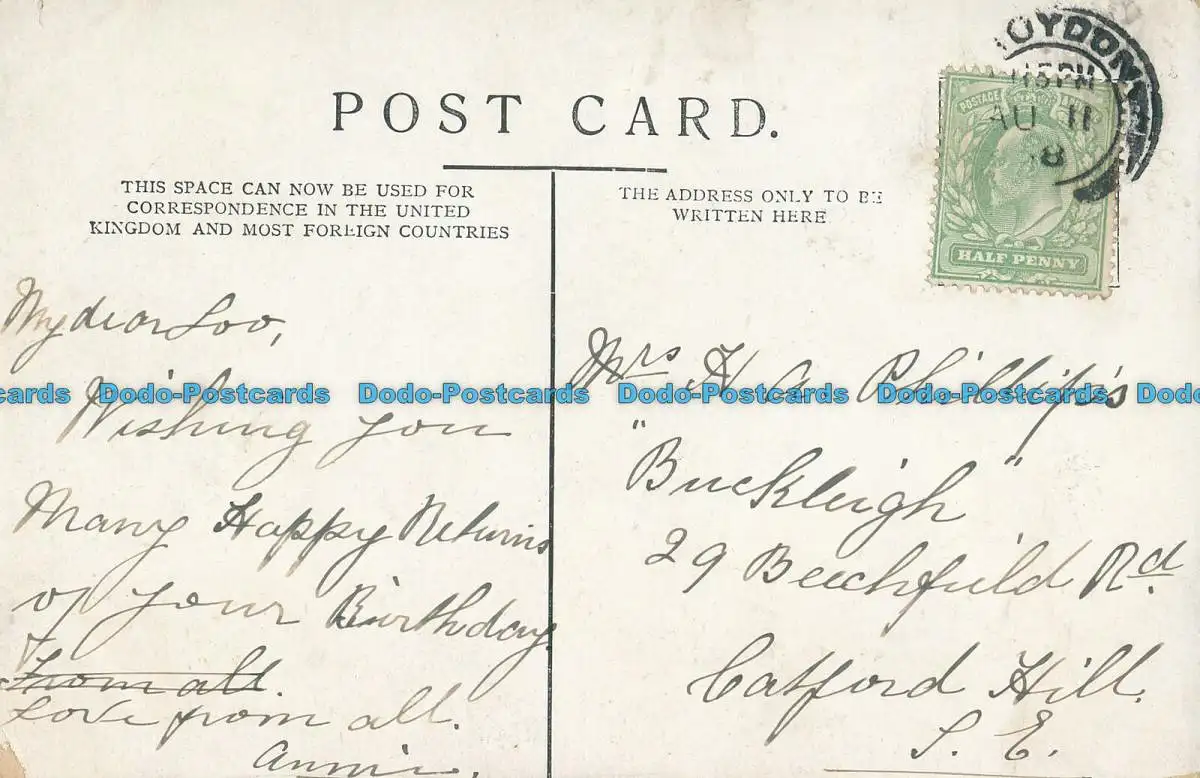 POST CARD.
THIS SPACE CAN NOW BE USED FOR
CORRESPONDENCE IN THE UNITED
KINGDOM AND MOST FOREIGN COUNTRIES
THE ADDRESS ONLY TO BE
WRITTEN HERE
OYDON
15 PM
AU 11
8
POSTAGE
HALF PENNY
My dear Loo,
Wishing you
Many Happy Returns
of your Birthday
From all.
Love from all.
Annie.
Mrs H A Phillip's
"Buckleigh"
29 Beechfield Rd.
Catford Hill.
S. E.
cards Dodo-Postcards Dodo-Postcards Dodo-Postcards Dodo-Postcards Dodo